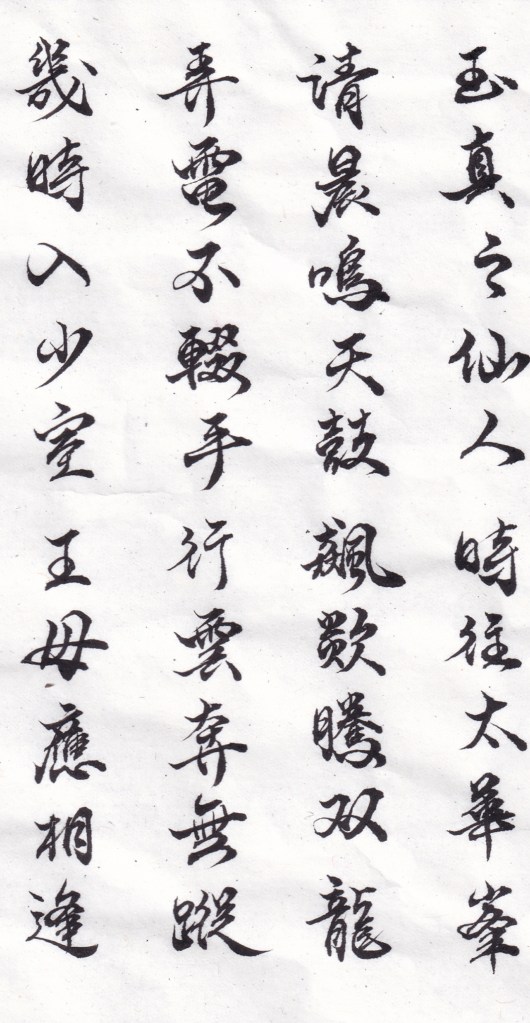 玉真之仙人時往太華峯
请晨鳴天鼓飆欻騰双龍
弄電不輟手行雲奔無蹤
幾時入少室王母應相逢